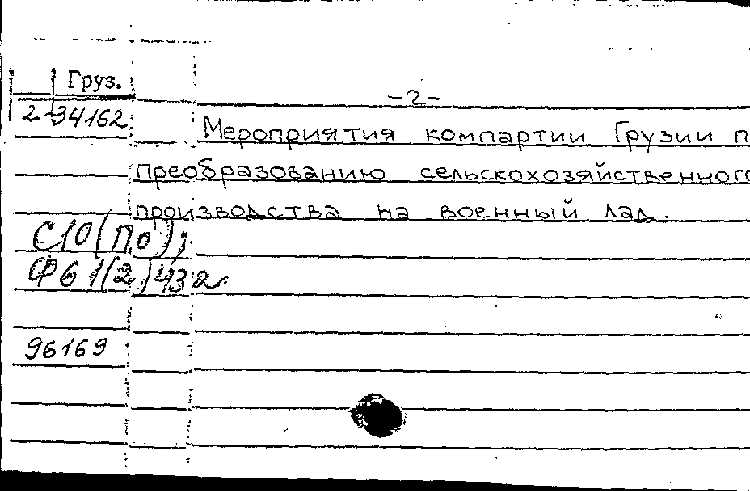 Груз.
-2-
2-34162
Мероприятия компартии Грузии п
преобразованию сельскохозяйственного
производства на военный лад.
С10(По);
Ф61(2)432
96169